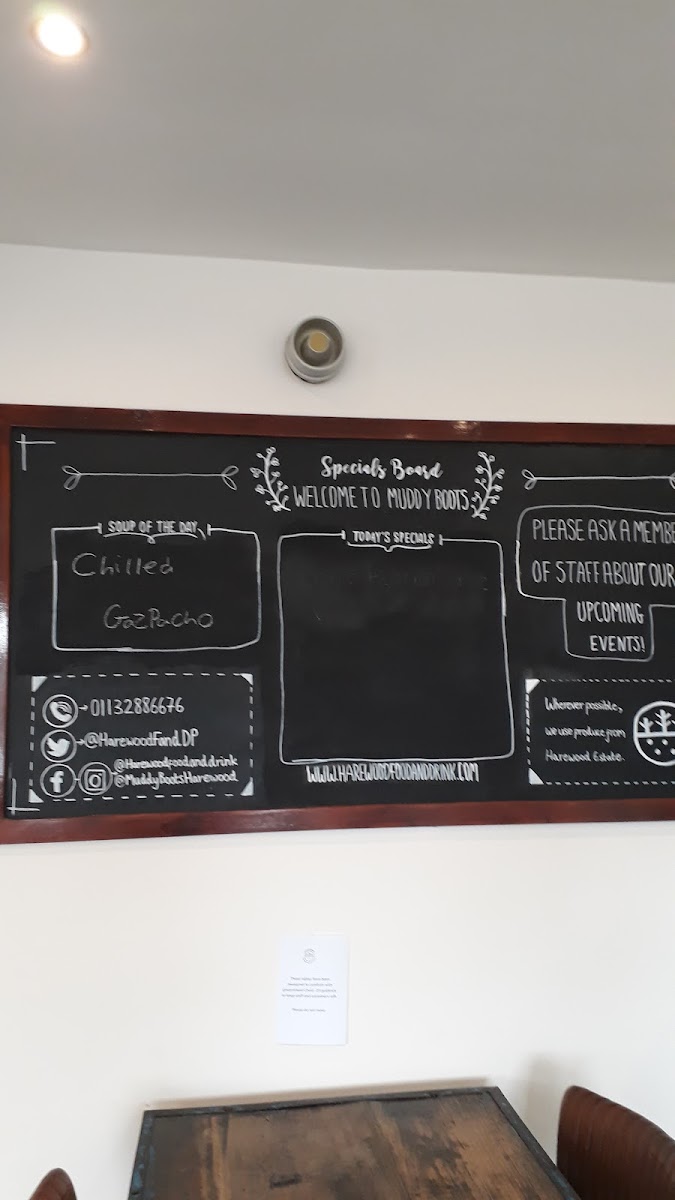 Specials Board
WELCOME TO MUDDY BOOTS
SOUP OF THE DAY
Chilled
GazPacho
TODAY'S SPECIALS
PLEASE ASK A MEMBE
OF STAFF ABOUT OUR
UPCOMING
EVENTS!
01132886676
@HarewoodFand.DP
@Harewoodfoodand.drink
@MuddyBootsHarewood
WWW.HAREWOODFOODANDDRINK.COM
Wherever possible,
we use produce from
Harewood Estate.